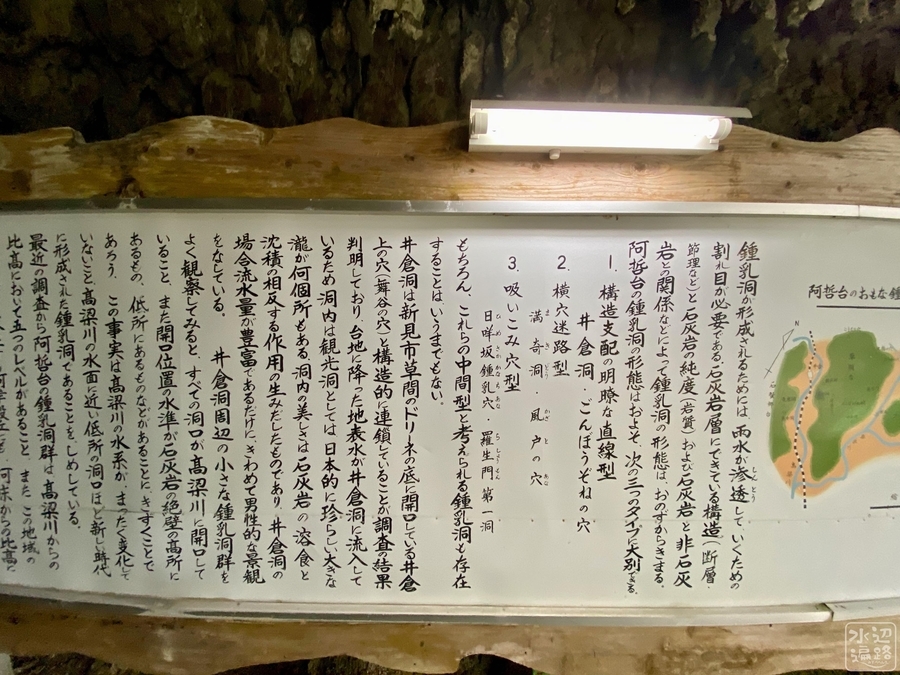 阿哲台のおもな鍾
鍾乳洞が形成されるためには、雨水が滲透していくための
割れ目が必要である。石灰岩層にできている構造(断層・
節理など)と石灰岩の純度(岩質)および石灰岩と非石灰
岩との関係などによって鍾乳洞の形態は、おのずからきまる。
阿哲台の鍾乳洞の形態はおよそ、次の三つのタイプに大別できる。
1. 構造支配の明瞭な直線型
井倉洞・ごんぼうぞねの穴
2. 横穴迷路型
満奇洞・風戸の穴
3. 吸いこみ穴型
日咩坂鍾乳穴、羅生門第一洞
もちろん、これらの中間型と考えられる鍾乳洞も存在
することは、いうまでもない。
井倉洞は新見市草間のドリーネの底に開口している井倉
上の穴(舞谷の穴)と構造的に連鎖していることが調査の結果
判明しており、台地に降った地表水が井倉洞に流入して
いるため洞内は観光洞としては日本的に珍らしい大きな
瀧が何個所もある。洞内の美しさは石灰岩の溶食と
沈積の相反する作用の生んだしたものであり、井倉洞の
場合流水量が豊富であるだけに、きわめて男性的な景観
をなしている。 井倉洞周辺の小さな鍾乳洞群を
よく観察してみると、すべての洞口が高梁川に開口して
いること、また開口位置の水準が石灰岩の絶壁の高所に
あるもの、低所にあるものなどがあることにきずくことで
あろう。この事実は高梁川の水系が、まったく変化して
いないこと、高梁川の水面に近い低所の洞口ほど新しい時代
に形成された鍾乳洞であることを、しめしている。
最近の調査から阿哲台の鍾乳洞群は高梁川からの
比高において五つのレベルがあること、また、この地域の
水辺遍路